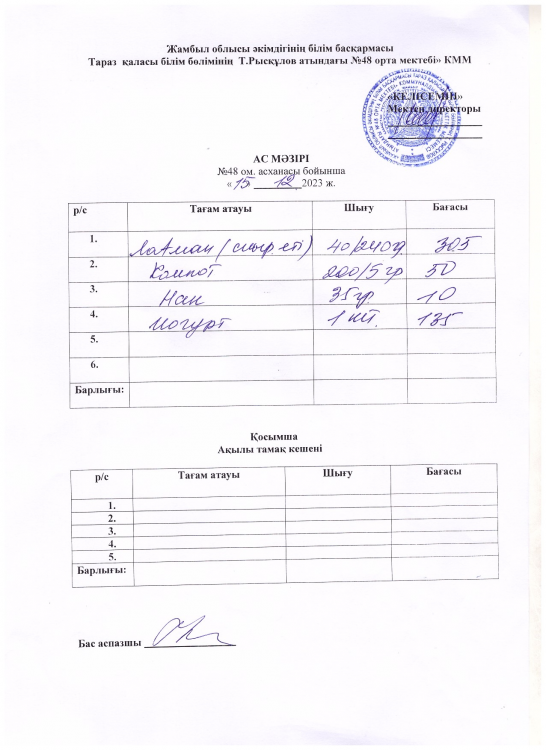 Жамбыл облысы әкімдігінің білім басқармасы
Тараз қаласы білім бөлімінің Т.Рысқұлов атындағы №48 орта мектебі» КММ
«КЕЛІСЕМІН»
Мектеп директоры
АС МӘЗІРІ
№48 ом. асханасы бойынша
« 15 12 2023 ж.
р/с Тағам атауы Шығу Бағасы
1. Лағман (сиыр еті) 40/240гр 305
2. Компот 200/5 гр 50
3. Нан 35гр 10
4. Йогурт 1 шт. 135
5.
6.
Барлығы:
Қосымша
Ақылы тамақ кешені
р/с Тағам атауы Шығу Бағасы
1.
2.
3.
4.
5.
Барлығы:
Бас аспазшы